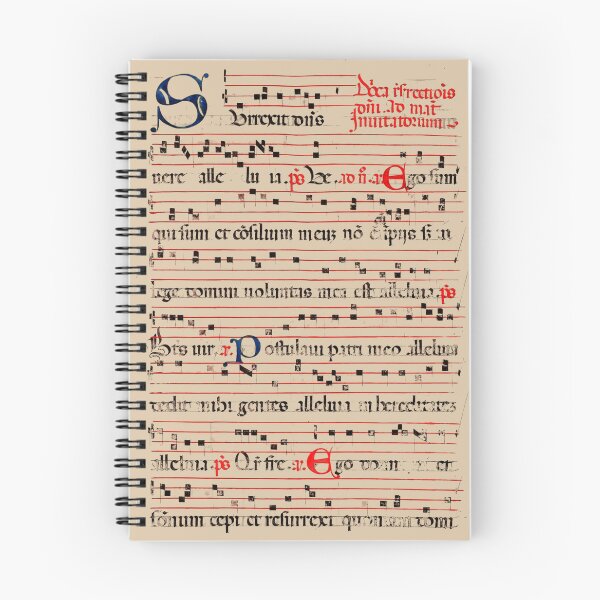 Surrexit dñs Dñica rſrectiõis
dñi. Ad mat̃
Inuitatorium
uere alle lu ia. p̃s Ve. ad ñ. a. Ego sum
qui sum et cõsilium meuz nõ est
lege domini uoluntas mea est alleluia. p̃s
Bt̃s uir. a. Postulaui patri meo alleluia
dedit mihi gentes alleluia in hereditatez
alleluia. p̃s Qr̃ fre. a. Ego dor et
sõnum cepi et resurrexi quoniam domi